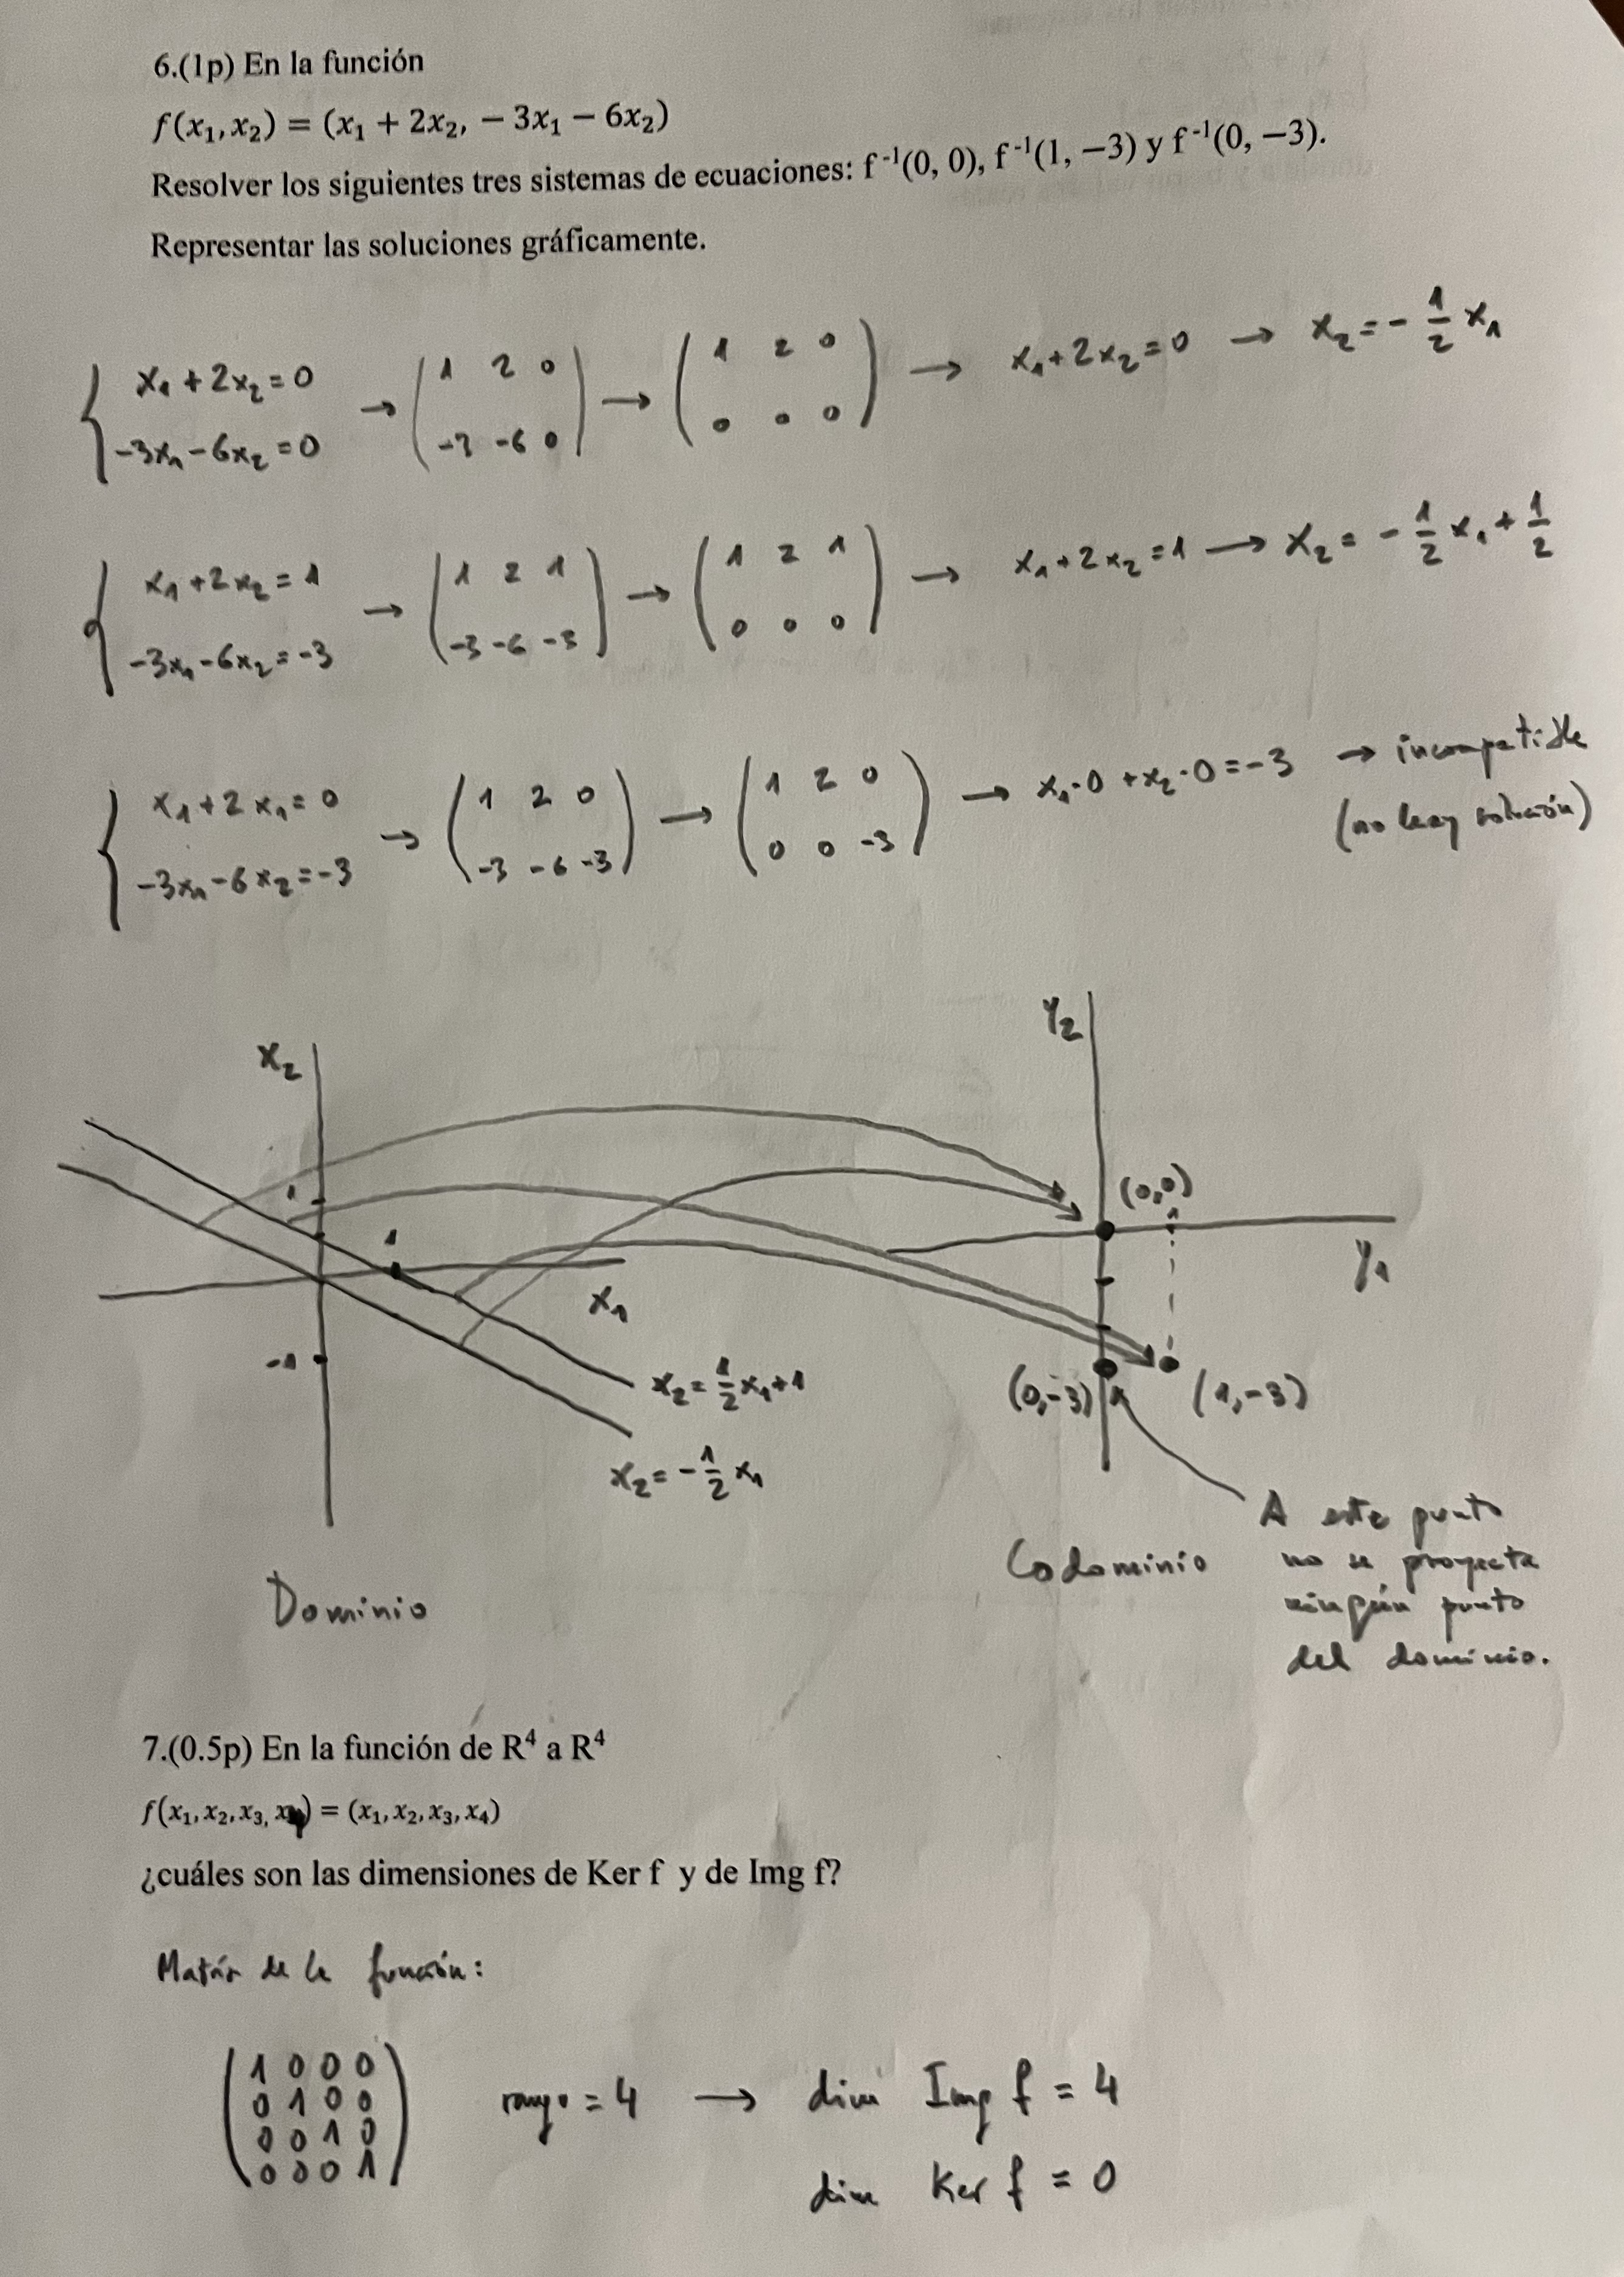 6.(1p) En la función
f(x₁, x₂) = (x₁ + 2x₂, − 3x₁ − 6x₂)
Resolver los siguientes tres sistemas de ecuaciones: f⁻¹(0, 0), f⁻¹(1, −3) y f⁻¹(0, −3).
Representar las soluciones gráficamente.
{ x₁ + 2x₂ = 0 → ( 1 2 0 → ( 1 2 0 ) → x₁ + 2x₂ = 0 → x₂ = - 1/2 x₁
-3x₁ - 6x₂ = 0 -3 -6 0 ) 0 0 0
{ x₁ + 2x₂ = 1 → ( 1 2 1 ) → ( 1 2 1 ) → x₁ + 2x₂ = 1 → x₂ = - 1/2 x₁ + 1/2
-3x₁ - 6x₂ = -3 -3 -6 -3 0 0 0
{ x₁ + 2x₁ = 0 → ( 1 2 0 ) → ( 1 2 0 ) → x₁·0 + x₂·0 = -3 → incompatible
-3x₁ - 6x₂ = -3 -3 -6 -3 0 0 -3 (no hay solución)
x₂
1
1
-1
x₁
x₂ = 1/2 x₁ + 1
x₂ = - 1/2 x₁
Dominio
Y₂
(0,0)
1
Y₁
(0,-3)
(1,-3)
Codominio
A este punto
no se proyecta
ningún punto
del dominio.
7.(0.5p) En la función de R⁴ a R⁴
f(x₁, x₂, x₃, x₄) = (x₁, x₂, x₃, x₄)
¿cuáles son las dimensiones de Ker f y de Img f?
Matriz de la función:
( 1 0 0 0 )
0 1 0 0
0 0 1 0
0 0 0 1
rango = 4 → dim Img f = 4
dim Ker f = 0